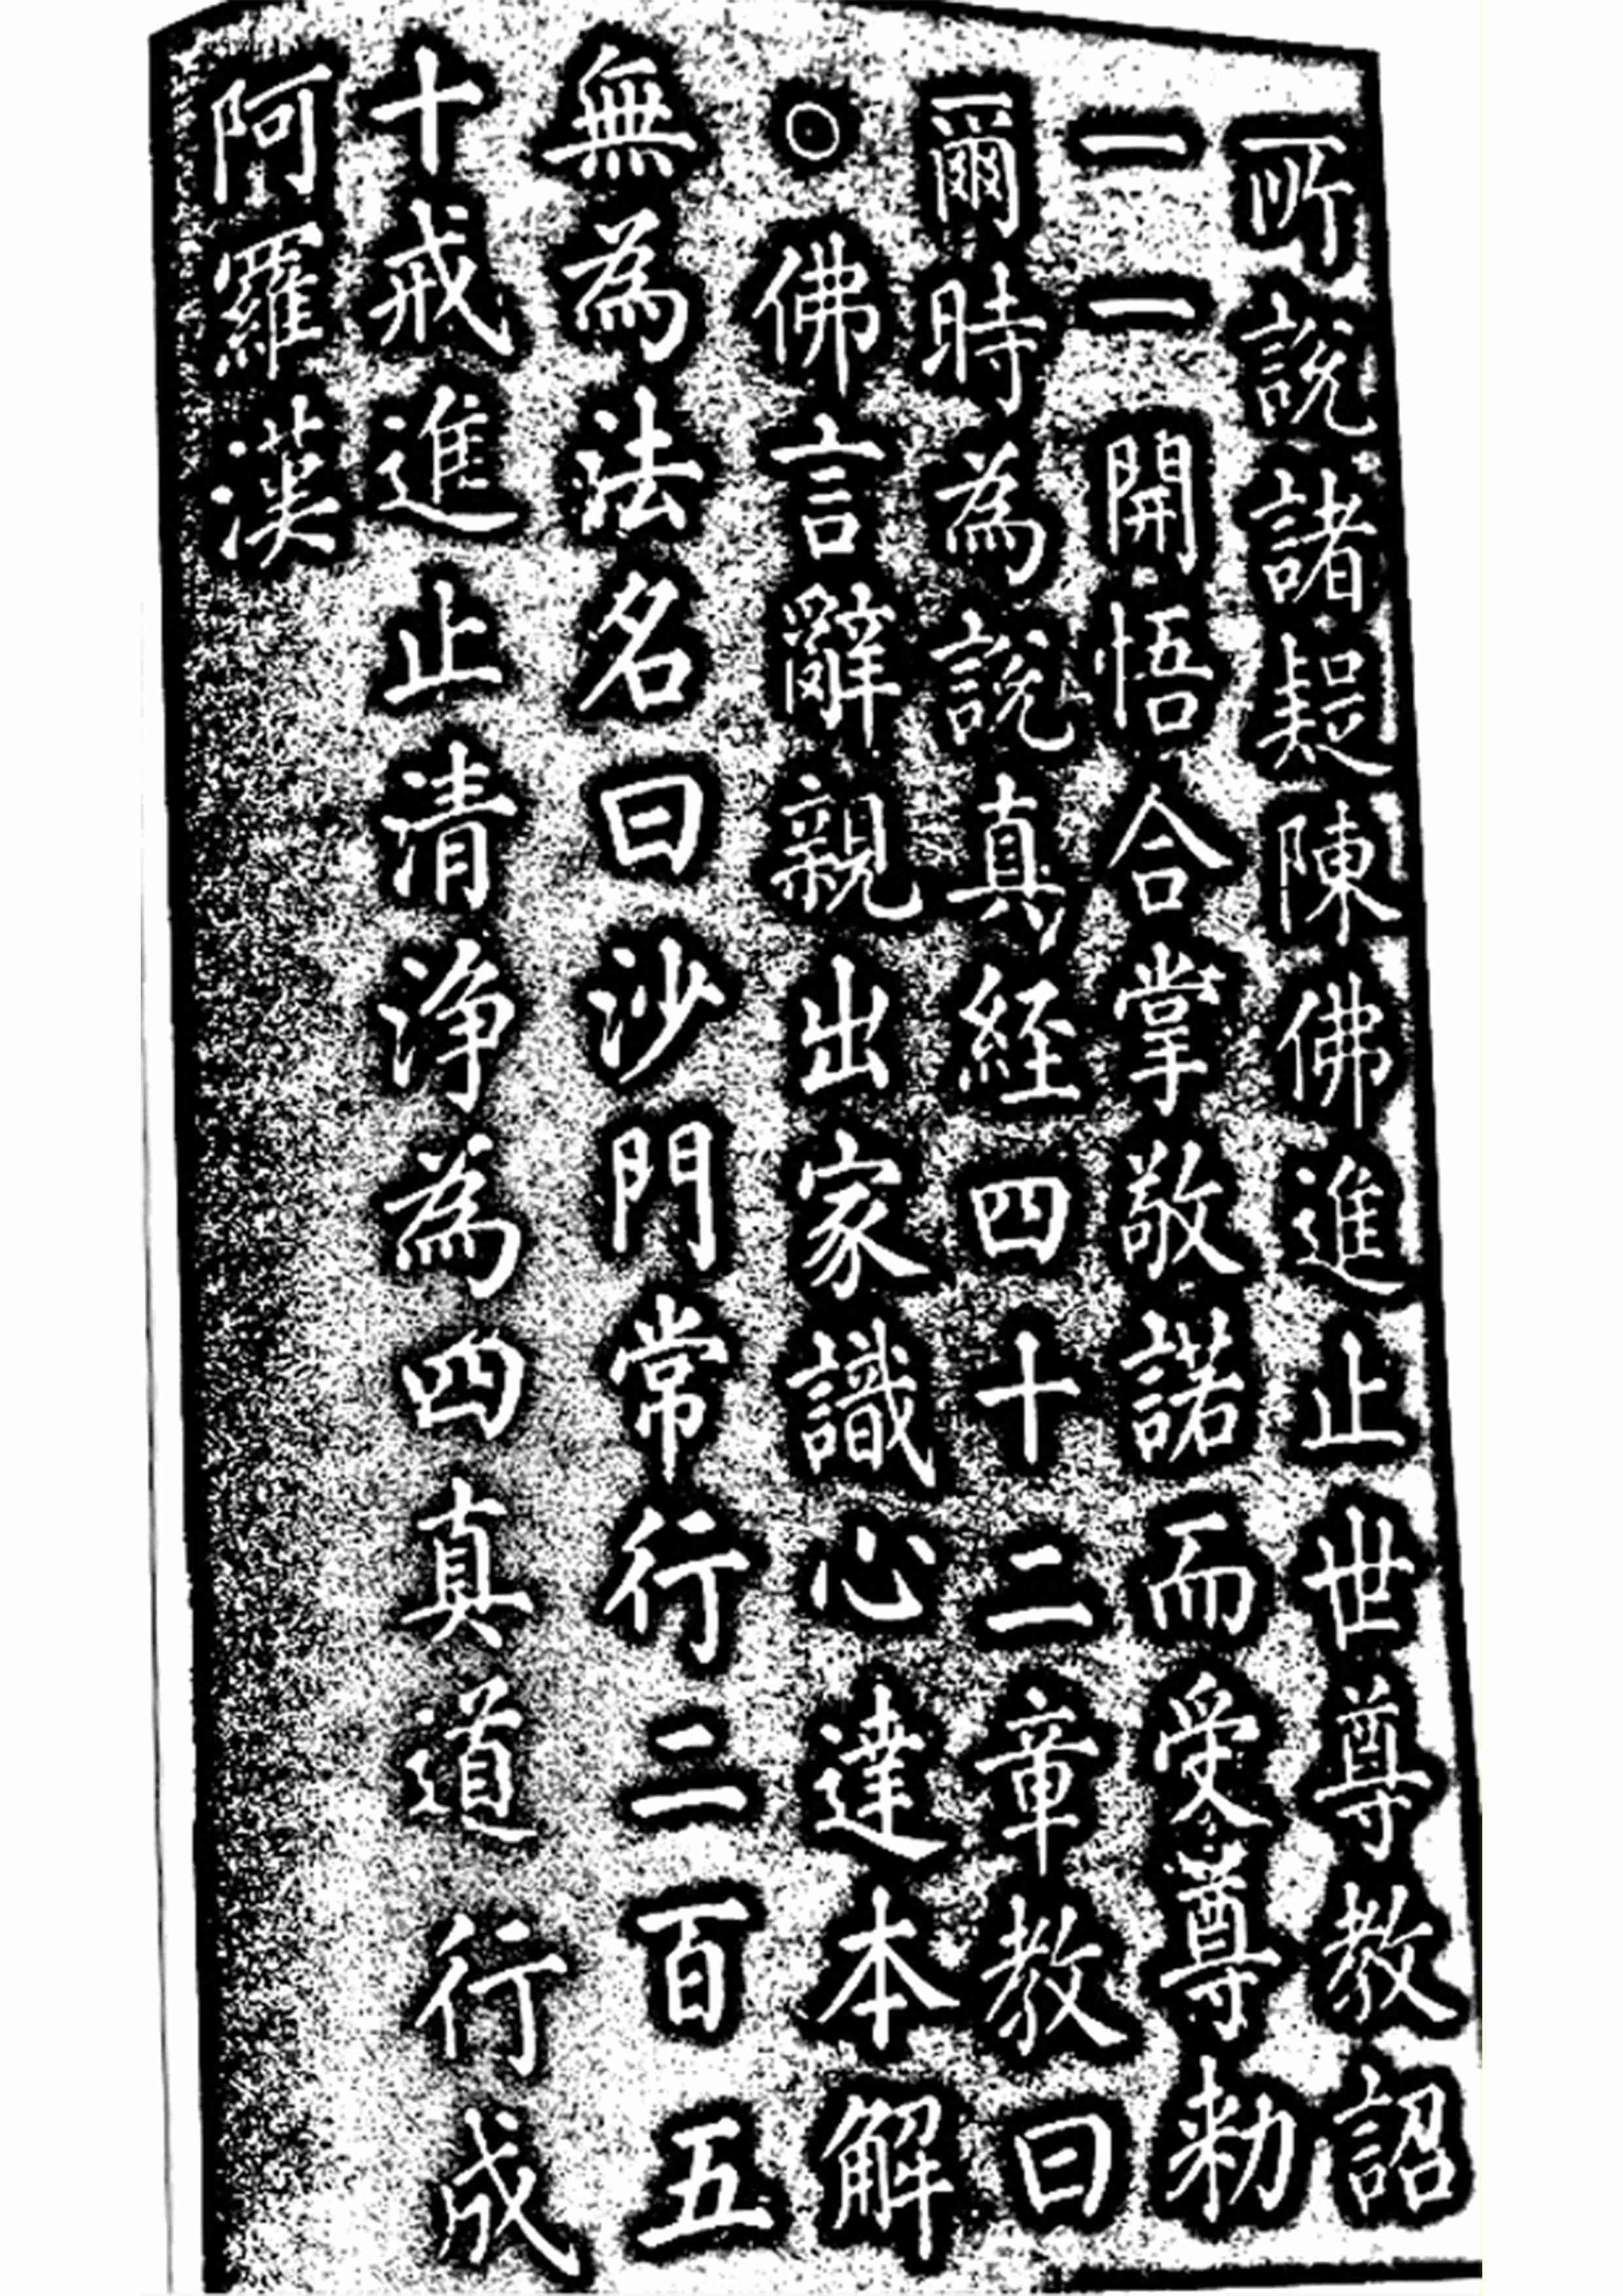 所說諸疑陳佛進止世尊教詔
一一開悟合掌敬諾而受尊勑
爾時為說真經四十二章教曰
○佛言辭親出家識心達本解
無為法名曰沙門常行二百五
十戒進止清淨為四真道行成
阿羅漢